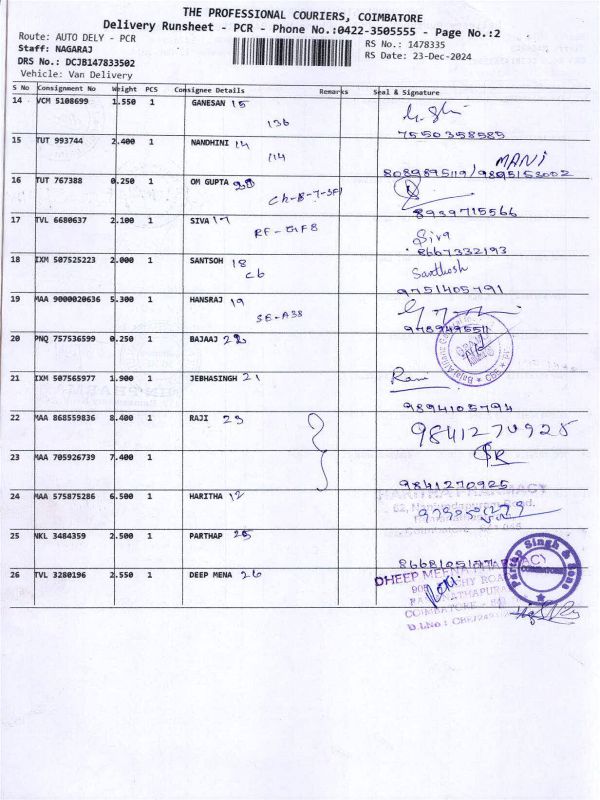 THE PROFESSIONAL COURIERS, COIMBATORE
Delivery Runsheet - PCR - Phone No.:0422-3505555 - Page No.:2
Route: AUTO DELY - PCR
RS No.: 1478335
Staff: NAGARAJ
RS Date: 23-Dec-2024
DRS No.: DCJB147833502
Vehicle: Van Delivery
S No Consignment No Weight PCS Consignee Details Remarks Seal & Signature
14 VCM 5108699 1.550 1 GANESAN 15
136
7550358585
15 TUT 993744 2.400 1 NANDHINI 14
114
MANI
8089895119/9895153002
16 TUT 767388 0.250 1 OM GUPTA
Ch-B-7-3F1
8939715566
17 TVL 6680637 2.100 1 SIVA 17
RF-GF8
Siva
8667332193
18 IXM 507525223 2.000 1 SANTSOH 18
C6
Santhosh
9751405791
19 MAA 9000020636 5.300 1 HANSRAJ 19
SE-A38
9789495511
20 PNQ 757536599 0.250 1 BAJAAJ
21 IXM 507565977 1.900 1 JEBHASINGH 21
Ram
9894105794
22 MAA 868559836 8.400 1 RAJI 23
9841270925
23 MAA 705926739 7.400 1
9841270925
24 MAA 575875286 6.500 1 HARITHA 12
HARITHA PHARMACY
25 NKL 3484359 2.500 1 PARTHAP 25
Partap Singh & Sons
COIMBATORE
26 TVL 3280196 2.550 1 DEEP MENA 26
DHEEP MEENA PHARMACY